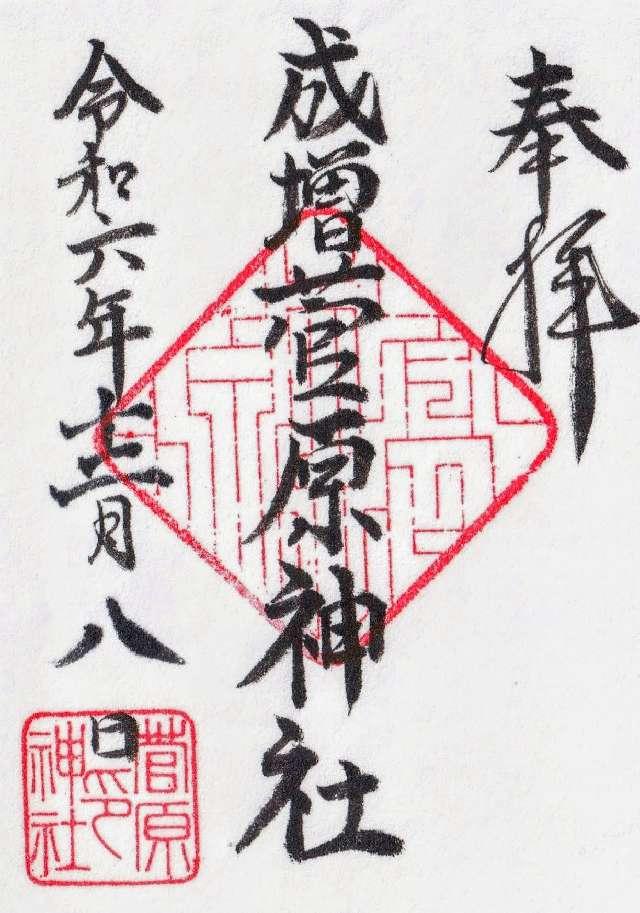 奉拝
成増菅原神社
令和六年十二月八日
菅原
之印
神社